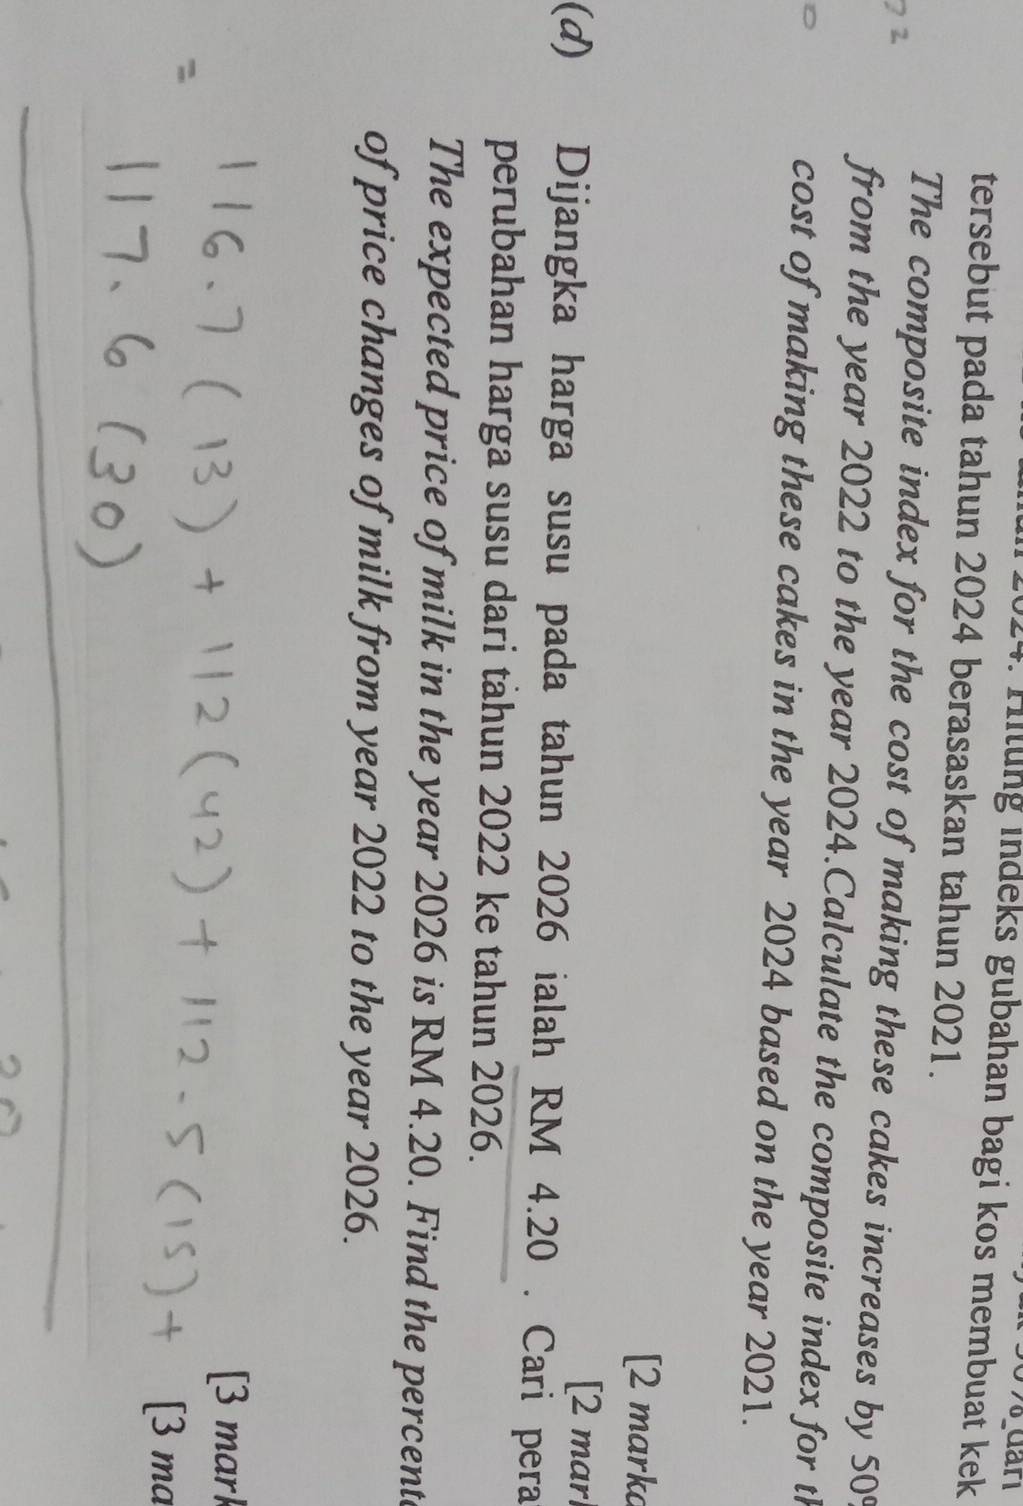 tersebut pada tahun 2024 berasaskan tahun 2021.
The composite index for the cost of making these cakes increases by 50
from the year 2022 to the year 2024.Calculate the composite index for
cost of making these cakes in the year 2024 based on the year 2021.
[2 marka
[2 mar
(d) Dijangka harga susu pada tahun 2026 ialah RM 4.20 . Cari
perubahan harga susu dari tahun 2022 ke tahun 2026.
The expected price of milk in the year 2026 is RM 4.20. Find the percent
of price changes of milk from year 2022 to the year 2026.
[3 mark
[3 ma
= 116.7 (13) + 112 (42) + 112.5 (15) +
117.6 (30)